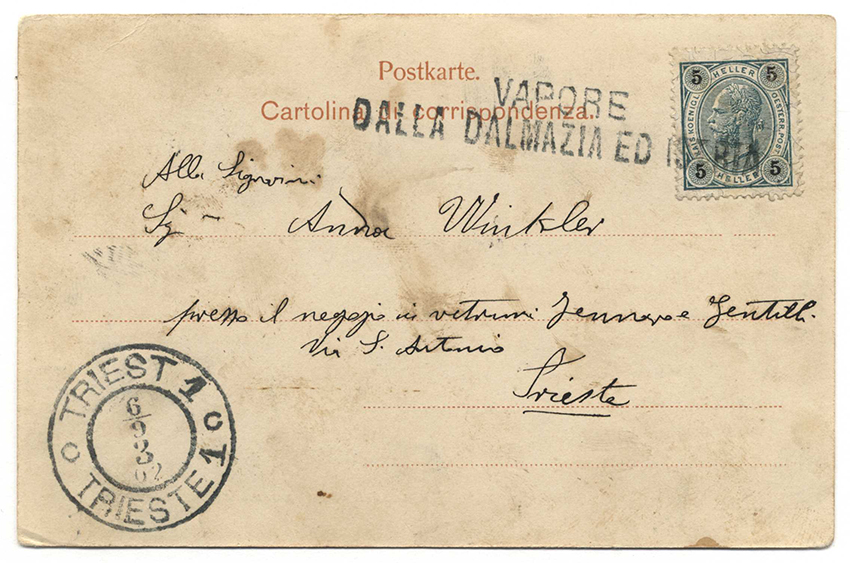 Postkarte.
Cartolina di corrispondenza.
VAPORE
DALLA DALMAZIA ED ISTRIA
5 HELLER 5
KAIS. KOENIGL. OESTERR. POST
5 HELLER 5
Alla Signorina
Sig
Anna Winkler
presso il negozio in vetrami Jennaro e Gentilli
Via S. Antonio
Trieste
TRIEST 1
6
9
02
TRIESTE 1